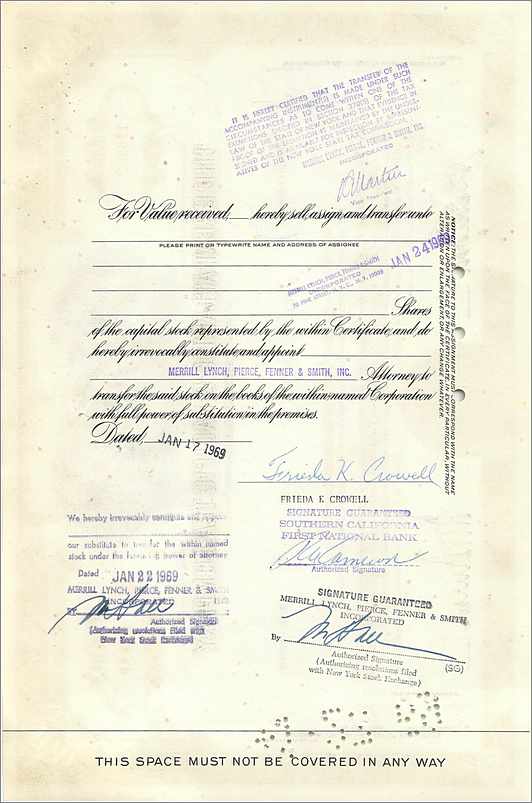 IT IS HEREBY CERTIFIED THAT THE TRANSFER OF THE
ACCOMPANYING INSTRUMENT(S) IS MADE UNDER SUCH
CIRCUMSTANCES AS TO COME WITHIN ONE OF THE
EXEMPTIONS PERMITTED BY SECTION 270(5) OF THE TAX
LAW OF THE STATE OF NEW YORK AND THAT EVIDENCE IN
MERRILL LYNCH, PIERCE, FENNER & SMITH, INC.
INCORPORATED
For Value received, hereby sell, assign and transfer unto
PLEASE PRINT OR TYPEWRITE NAME AND ADDRESS OF ASSIGNEE
JAN 24 1969
MERRILL LYNCH, PIERCE, FENNER & SMITH
INCORPORATED
70 PINE STREET, N.Y.C., N.Y. 10005
Shares
of the capital stock represented by the within Certificate, and do
hereby irrevocably constitute and appoint
MERRILL LYNCH, PIERCE, FENNER & SMITH, INC. Attorney to
transfer the said stock on the books of the within-named Corporation
with full power of substitution in the premises.
Dated, JAN 17 1969
NOTICE: THE SIGNATURE TO THIS ASSIGNMENT MUST CORRESPOND WITH THE NAME
AS WRITTEN UPON THE FACE OF THE CERTIFICATE IN EVERY PARTICULAR, WITHOUT
ALTERATION OR ENLARGEMENT, OR ANY CHANGE WHATEVER.
Frieda K. Crowell
FRIEDA K CROWELL
SIGNATURE GUARANTEED
SOUTHERN CALIFORNIA
FIRST NATIONAL BANK
Cameron
Authorized Signature
We hereby irrevocably constitute and appoint
our substitute to transfer the within named
stock under the foregoing power of attorney
Dated JAN 22 1969
MERRILL LYNCH, PIERCE, FENNER & SMITH
INCORPORATED
By
Authorized Signature
(Authorizing resolutions filed with
New York Stock Exchange)
SIGNATURE GUARANTEED
MERRILL LYNCH, PIERCE, FENNER & SMITH
INCORPORATED
By
Authorized Signature (SG)
(Authorizing resolutions filed
with New York Stock Exchange)
THIS SPACE MUST NOT BE COVERED IN ANY WAY